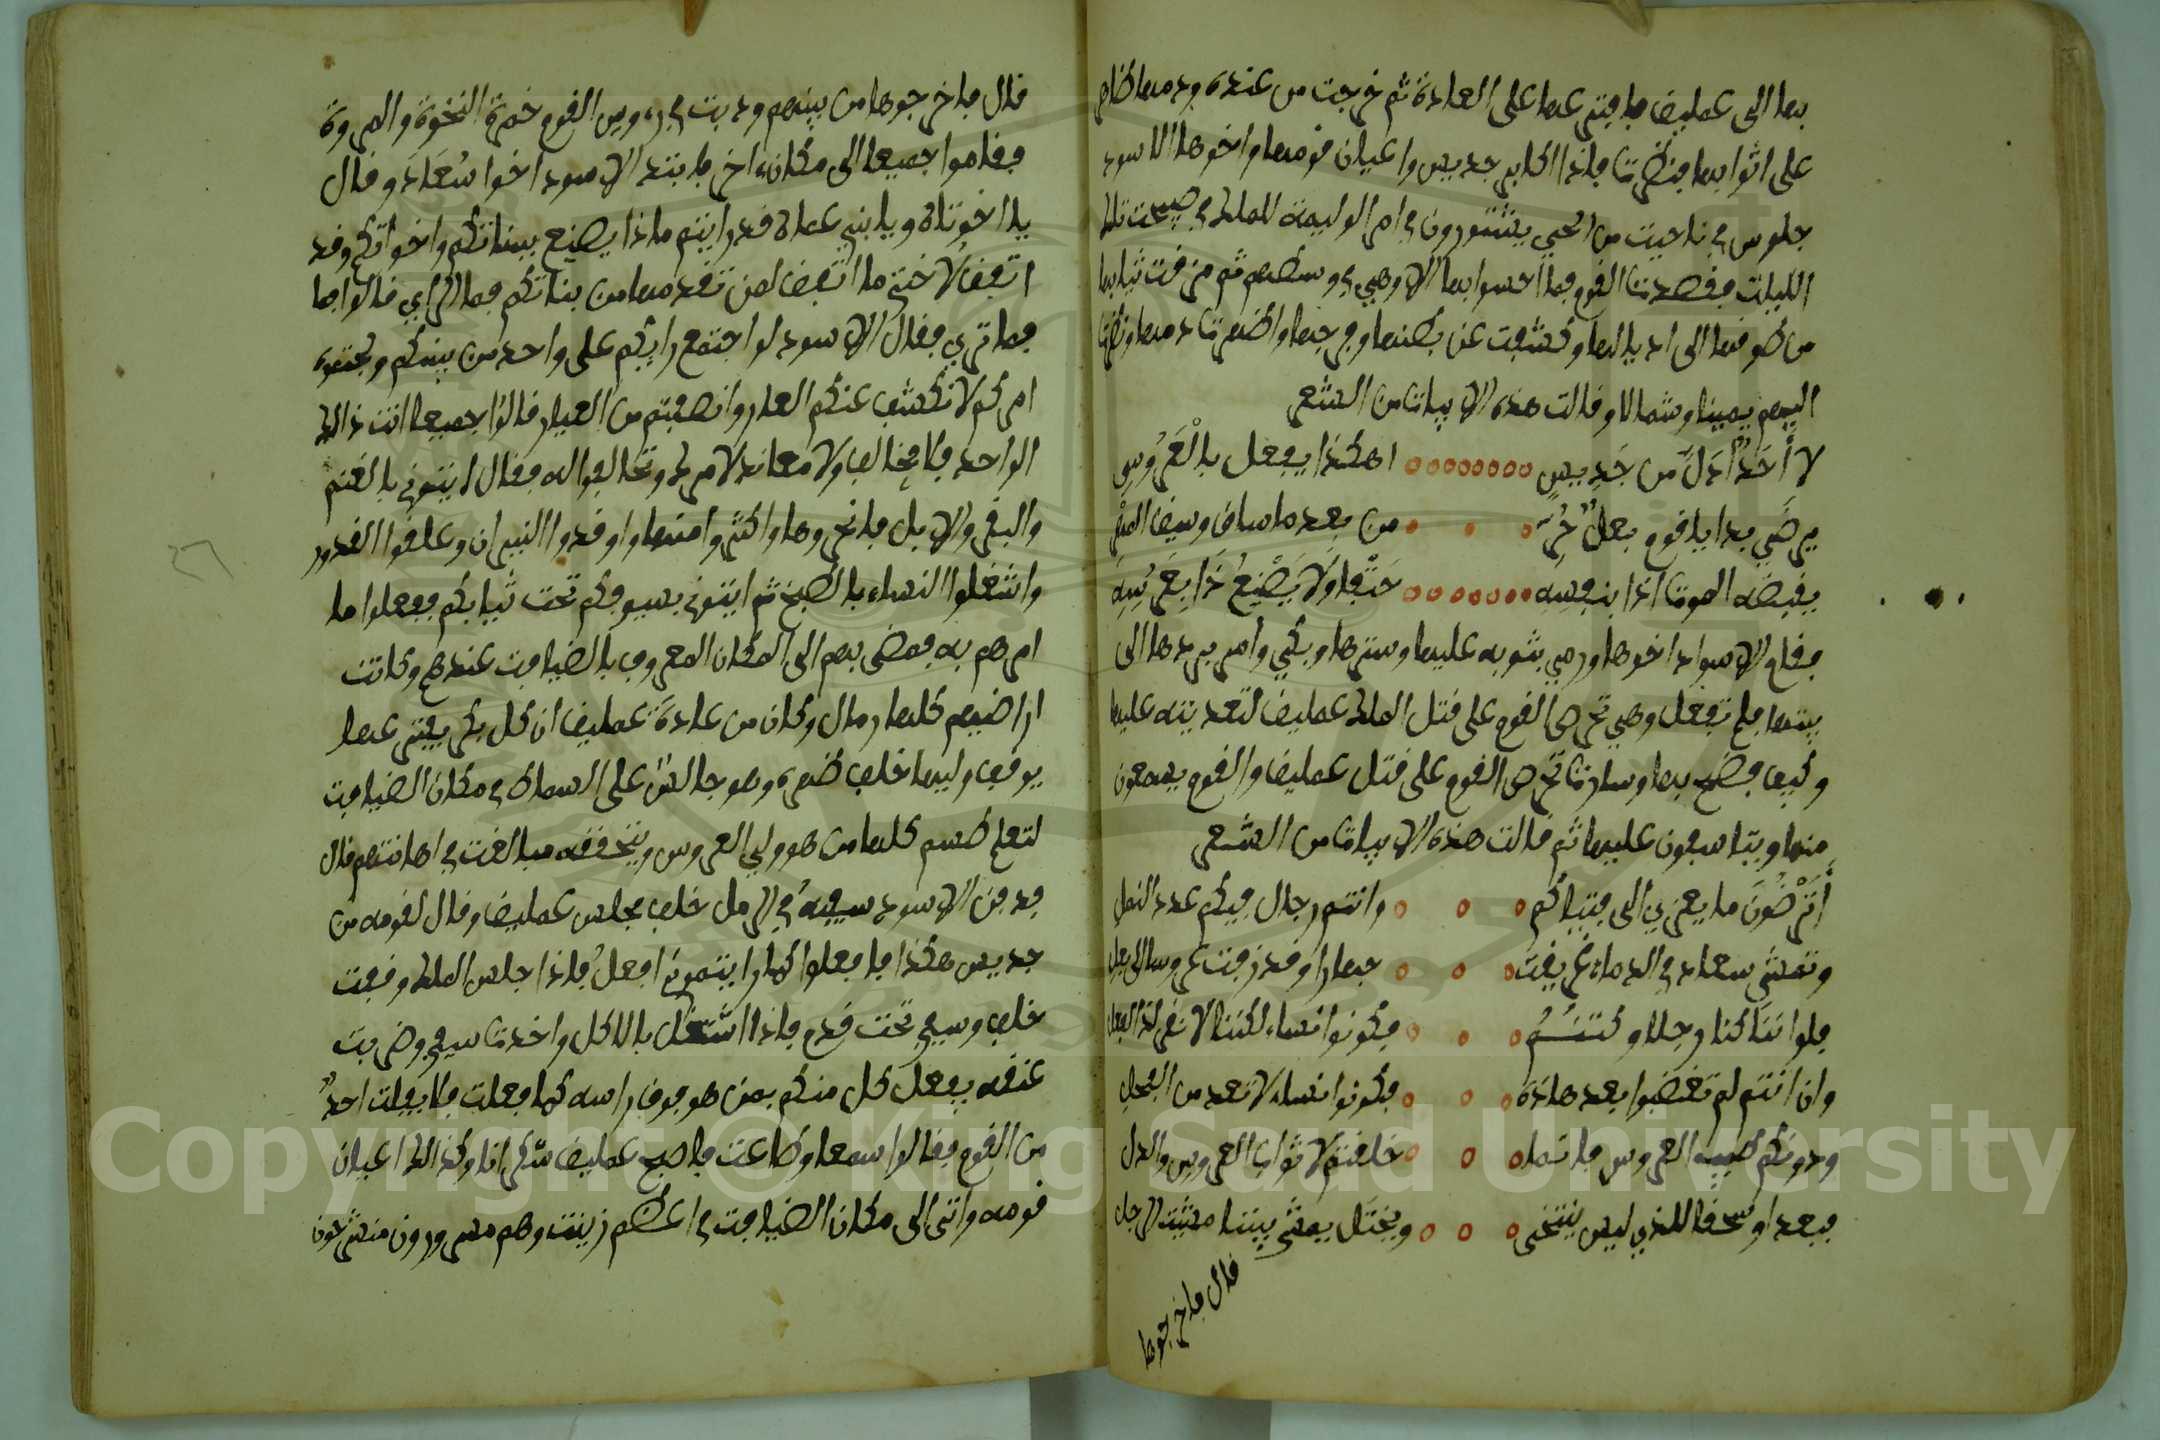 بها الى عمليق فافترعها على العادة ثم خرجت من عنده ودمها ظاهر
على اثوابها فنظرت فاذا اكابر جديس واعيان قومها واخوها الاسود
جلوس في ناحيت من الحي يتشورون في امر الوليمة للملك في صبيحت تلك
الليلت فقصدت القوم فما احسوا بها الا وهي في وسطهم ثم مزقت ثيابها
من طوقها الى اذيالها وكشفت عن بطنها وفرجها واظهرت دمها ونظرت
اليهم يمينا وشمالا وقالت هذه الابيات من الشعر
لا أحَدٌ أذلَّ من جَدِيسٍ اهكذا يفعل بالْعَرُوسِ
يرضَي بذا يا قوم بعلٌ حُرّ من بعد ما ساق وسيق المهر
يقبضه الموت اذا بنفسه حتْفا وَلا يَصْنَعُ ذَا بعَرُسِه
فقام الاسواد اخوها ورمي بثوبه عليها وسترها وبكي وامر بردها الى
بيتها فلم تفعل وهي تحرض القوم على قتل الملك عمليق لتعديته عليها
وكيف فضح بها وسارت تحرض القوم على قتل عمليق والقوم يسمعون
منها ويتاسفون عليها ثم قالت هذه الابيات من الشعر
أَتَرْضَوْنَ ما يجري الى فتياتكم وانتم رجال فيكم عدد النمل
وتمشي سعاد في الدماء غريقت جهارا وقد زفت عروسا الى بعل
فلو اننا كنا رجالا وكنتم فكونوا نساء لكننا لا نقر لذا الفعل
وان انتم لم تغضبوا بعد هاذه فكونوا نساء لا تعد من الفحل
ودونكم طيب العروس فانما خلقتم لاثواب العروس والذل
فبعدا وسحقا للذي ليس ينتخي ويختال يمشي بيننا مشيت الرجل
قال فاخرجوها
قال فاخرجوها من بينهم ودبت في رءوس القوم خمرة النخوة والمروة
فقاموا جميعا الى مكان اخر فابتدا الاسود اخوا سُعَادَ وقال
يا اخوتاه ويا بني عماه قد رايتم ماذا يصنع ببناتكم واخواتكم وقد
اتفق لاختي ما اتفق لمن تقدمها من بناتكم فما الراي قالوا فما
فما تري فقال الاسود لو اجتمع رايكم على واحد من بينكم وجمعتوه
امركم لانكشف عنكم العار وانصفتم من العيار قالوا جميعا انت ذالك
الواحد فلا مخالف ولا معاند لامرك وتحالفوا له فقال ايتوني بالغنم
والبقر والابل فانحروها واكثروا منها واوقدوا النيران وعلقوا القدور
واشغلوا النساء بالطبخ ثم ايتوني بسيوفكم تحت ثيابكم ففعلوا ما
امرهم به فمضى بهم الى المكان المعروف بالضيافت عندهم وكانت
اراضيهم كلها رمال وكان من عادة عمليق ان كل بكر يفترعها
يوقف وليها خلف ظهره وهو جالس على السماط في مكان الضيافت
لتعلم طسم كلها من هو ولي العروس ويتحققه مبالغت في اهانتهم قال
فدفن الاسود سيفهُ في الرمل خلف مجلس عمليق وقال لقومه من
جديس هكذا فافعلوا كما رايتموني افعلُ فاذا جلس الملك وقفت
خلفه وسيفي تحت قدم فاذا اشتغل بالاكل واخذت سيفي وضربت
عنقه يفعل كل منكم بمن هو فوق راسه كما فعلت فلا يفلت احدٌ
من القوم فقالوا سمعا وطاعت فاصبح عمليق سكرانا وكذالك اعيان
قومه واتى الى مكان الضيافت في اعظم زينت وهم مسرورون منشرحون
Copyright © King Saud University